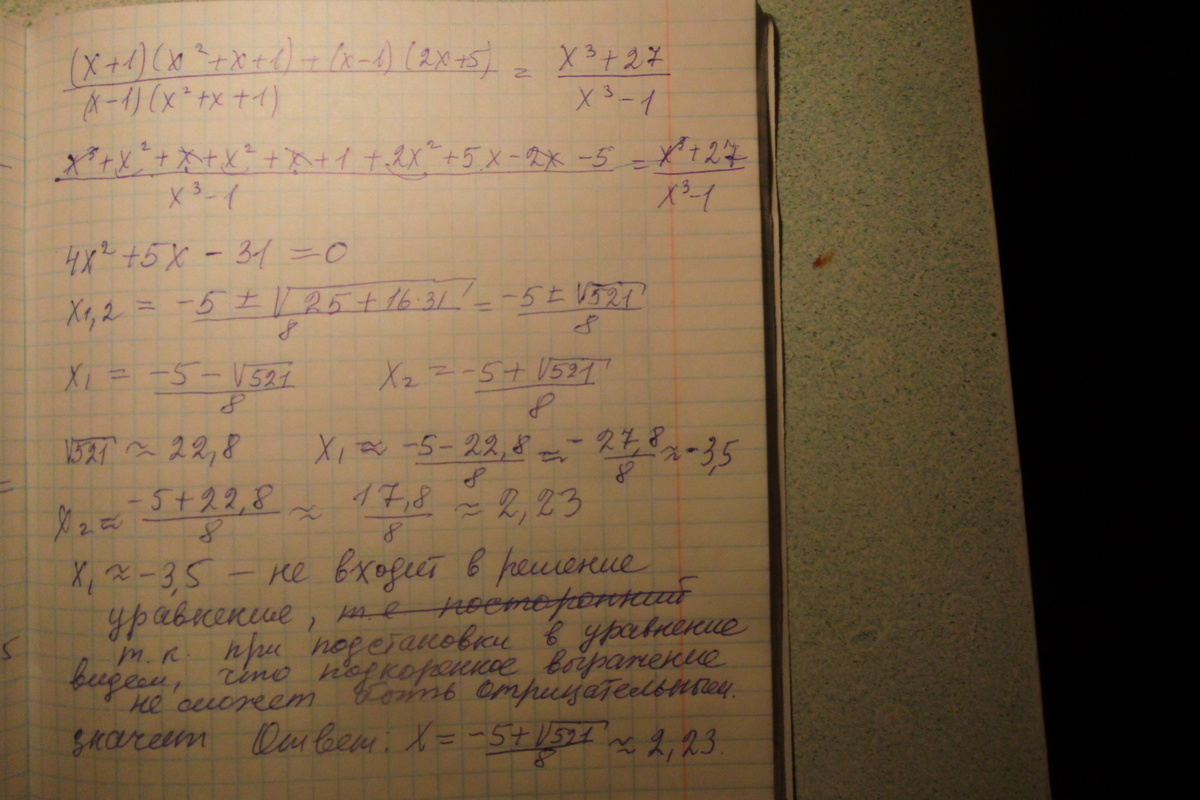 (x+1)(x²+x+1)+(x-1)(2x+5) / (x-1)(x²+x+1) = x³+27 / x³-1
x³+x²+x+x²+x+1+2x²+5x-2x-5 / x³-1 = x³+27 / x³-1
4x²+5x-31=0
x1,2 = -5±√25+16·31 / 8 = -5±√521 / 8
x₁ = -5-√521 / 8 x₂ = -5+√521 / 8
√521 ≈ 22,8 x₁ ≈ -5-22,8 / 8 ≈ -27,8 / 8 ≈ -3,5
x₂ ≈ -5+22,8 / 8 ≈ 17,8 / 8 ≈ 2,23
x₁ ≈ -3,5 — не входит в решение
уравнение, т.е посторонний
т.к. при подстановки в уравнение
видем, что подкоренное выражение
не сможет быть отрицательным.
значит Ответ: x = -5+√521 / 8 ≈ 2,23.
5